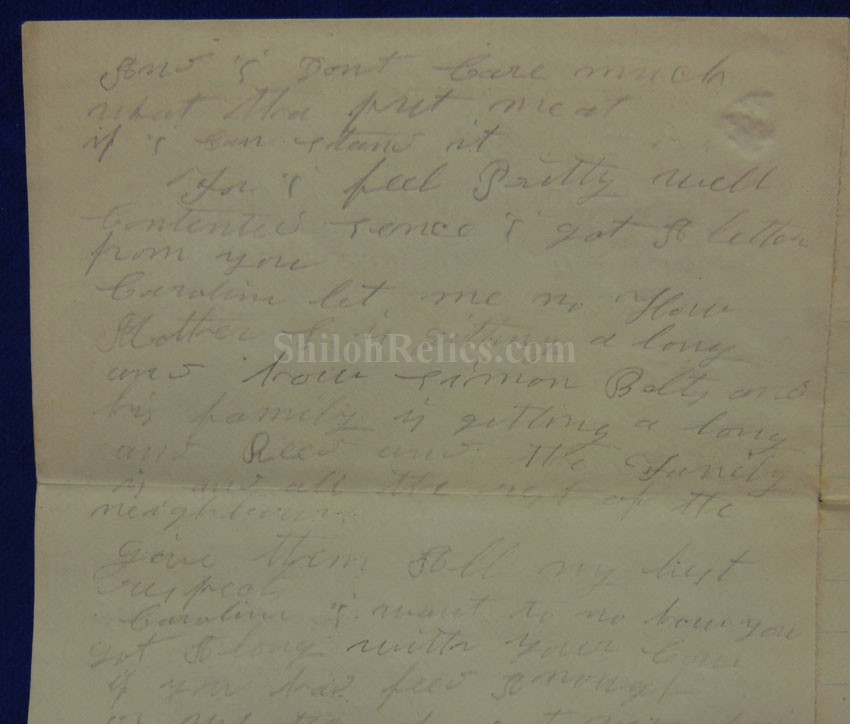 And i Dont Care much
what tha put me at
if i Can stand it
For i feel Pritty well
Contented sence i got A letter
from you
Caroline let me no How
Mother is gitting a long
and how Simon Bolts and
his family is getting a long
and Reed and the Family
is and all the rest of the
neighbours
give them All my best
respects
Caroline i want to no how you
got Along with your Cow
if you had feed Enough
ShilohRelics.com